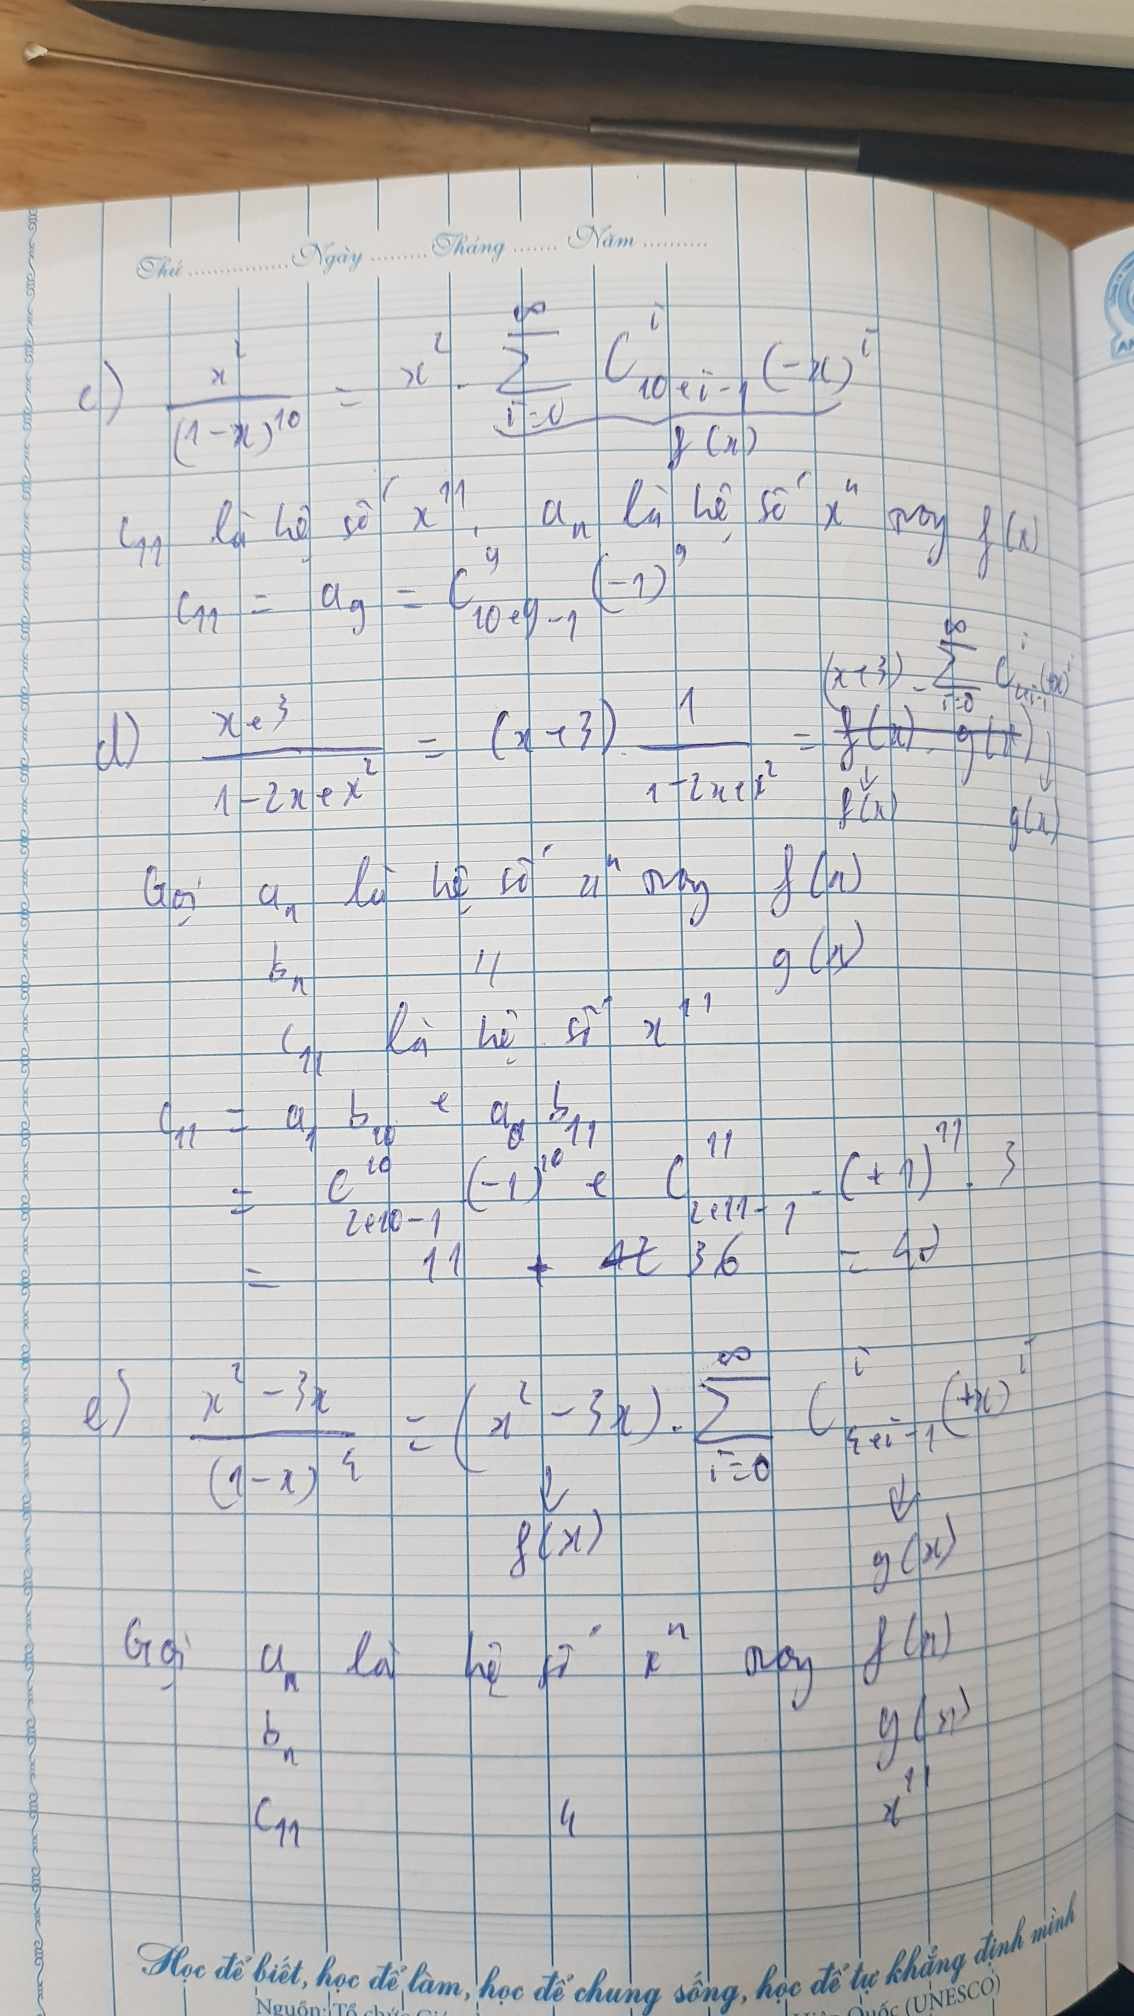 Thứ ................ Ngày ......... Tháng ....... Năm ..........
c) x² / (1-x)¹⁰ = x² . ∑_{i=0}^{∞} C_{10+i-1}^{i} (-x)^i
f(x)
c₁₁ là hệ số x¹¹, aₙ là hệ số xⁿ f(x)
c₁₁ = a₉ = C_{10+9-1}^{9} (-1)⁹
d) (x+3) / (1-2x+x²) = (x+3) . 1 / (1-2x+x²) = (x+3) . ∑_{i=0}^{∞} C_{2+i-1}^{i} (+x)^i
f(x) . g(x)
f(x) g(x)
Gọi aₙ là hệ số xⁿ f(x)
bₙ 〃 g(x)
c₁₁ là hệ số x¹¹
c₁₁ = a₁ b₁₀ + a₀ b₁₁
= C_{2+10-1}^{10} (-1)¹⁰ + C_{2+11-1}^{11} . (+1)¹¹ . 3
= 11 + 36 = 47
e) (x² - 3x) / (1-x)⁴ = (x² - 3x) . ∑_{i=0}^{∞} C_{4+i-1}^{i} (+x)^i
f(x) g(x)
Gọi aₙ là hệ số xⁿ f(x)
bₙ g(x)
c₁₁ 〃 x¹¹
Học để biết, học để làm, học để chung sống, học để tự khẳng định mình
Nguồn: Tổ chức Quốc (UNESCO)